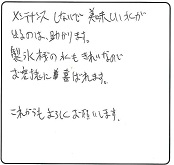 メンテナンスしないで美味しい水が
出るのは、助かります。
製氷機の氷もきれいなので
お客様に喜ばれます。
これからもよろしくお願いします。